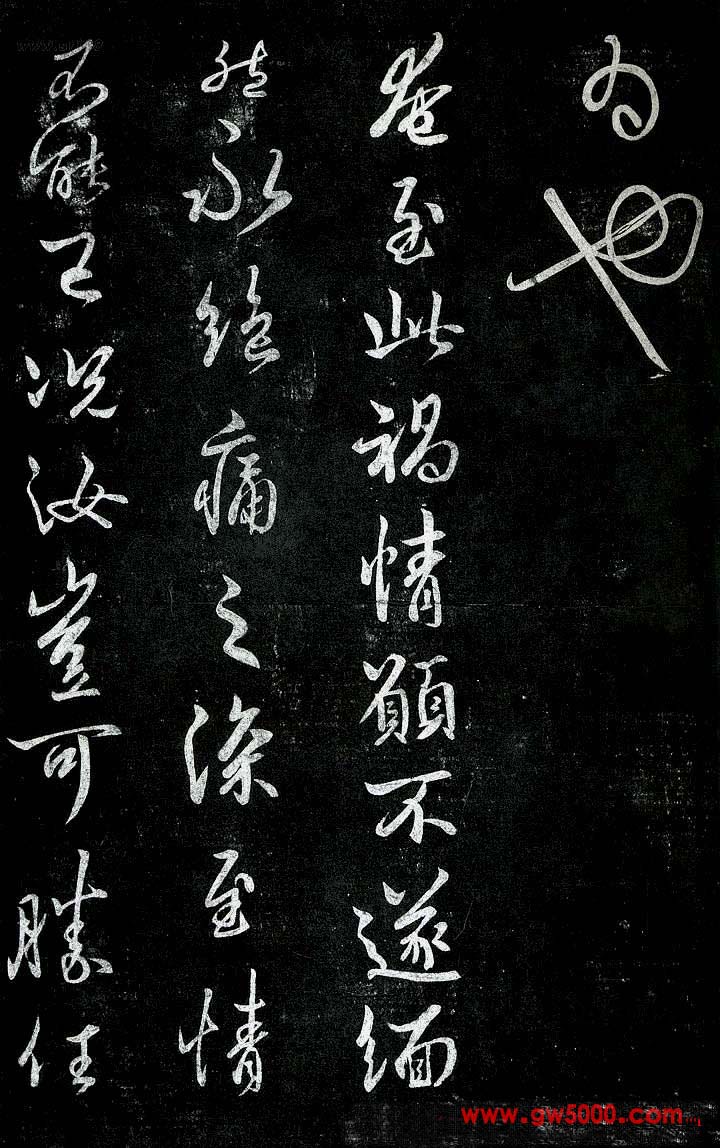 為也
奄至此禍情願不遂緬
然永絕痛之深至情
不能已况汝豈可勝任
www.gw5000.com